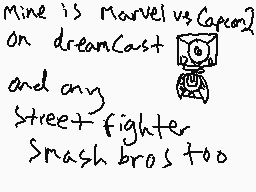 Mine is Marvel vs Capcom2
on dreamcast
and any
street fighter
Smash bros too